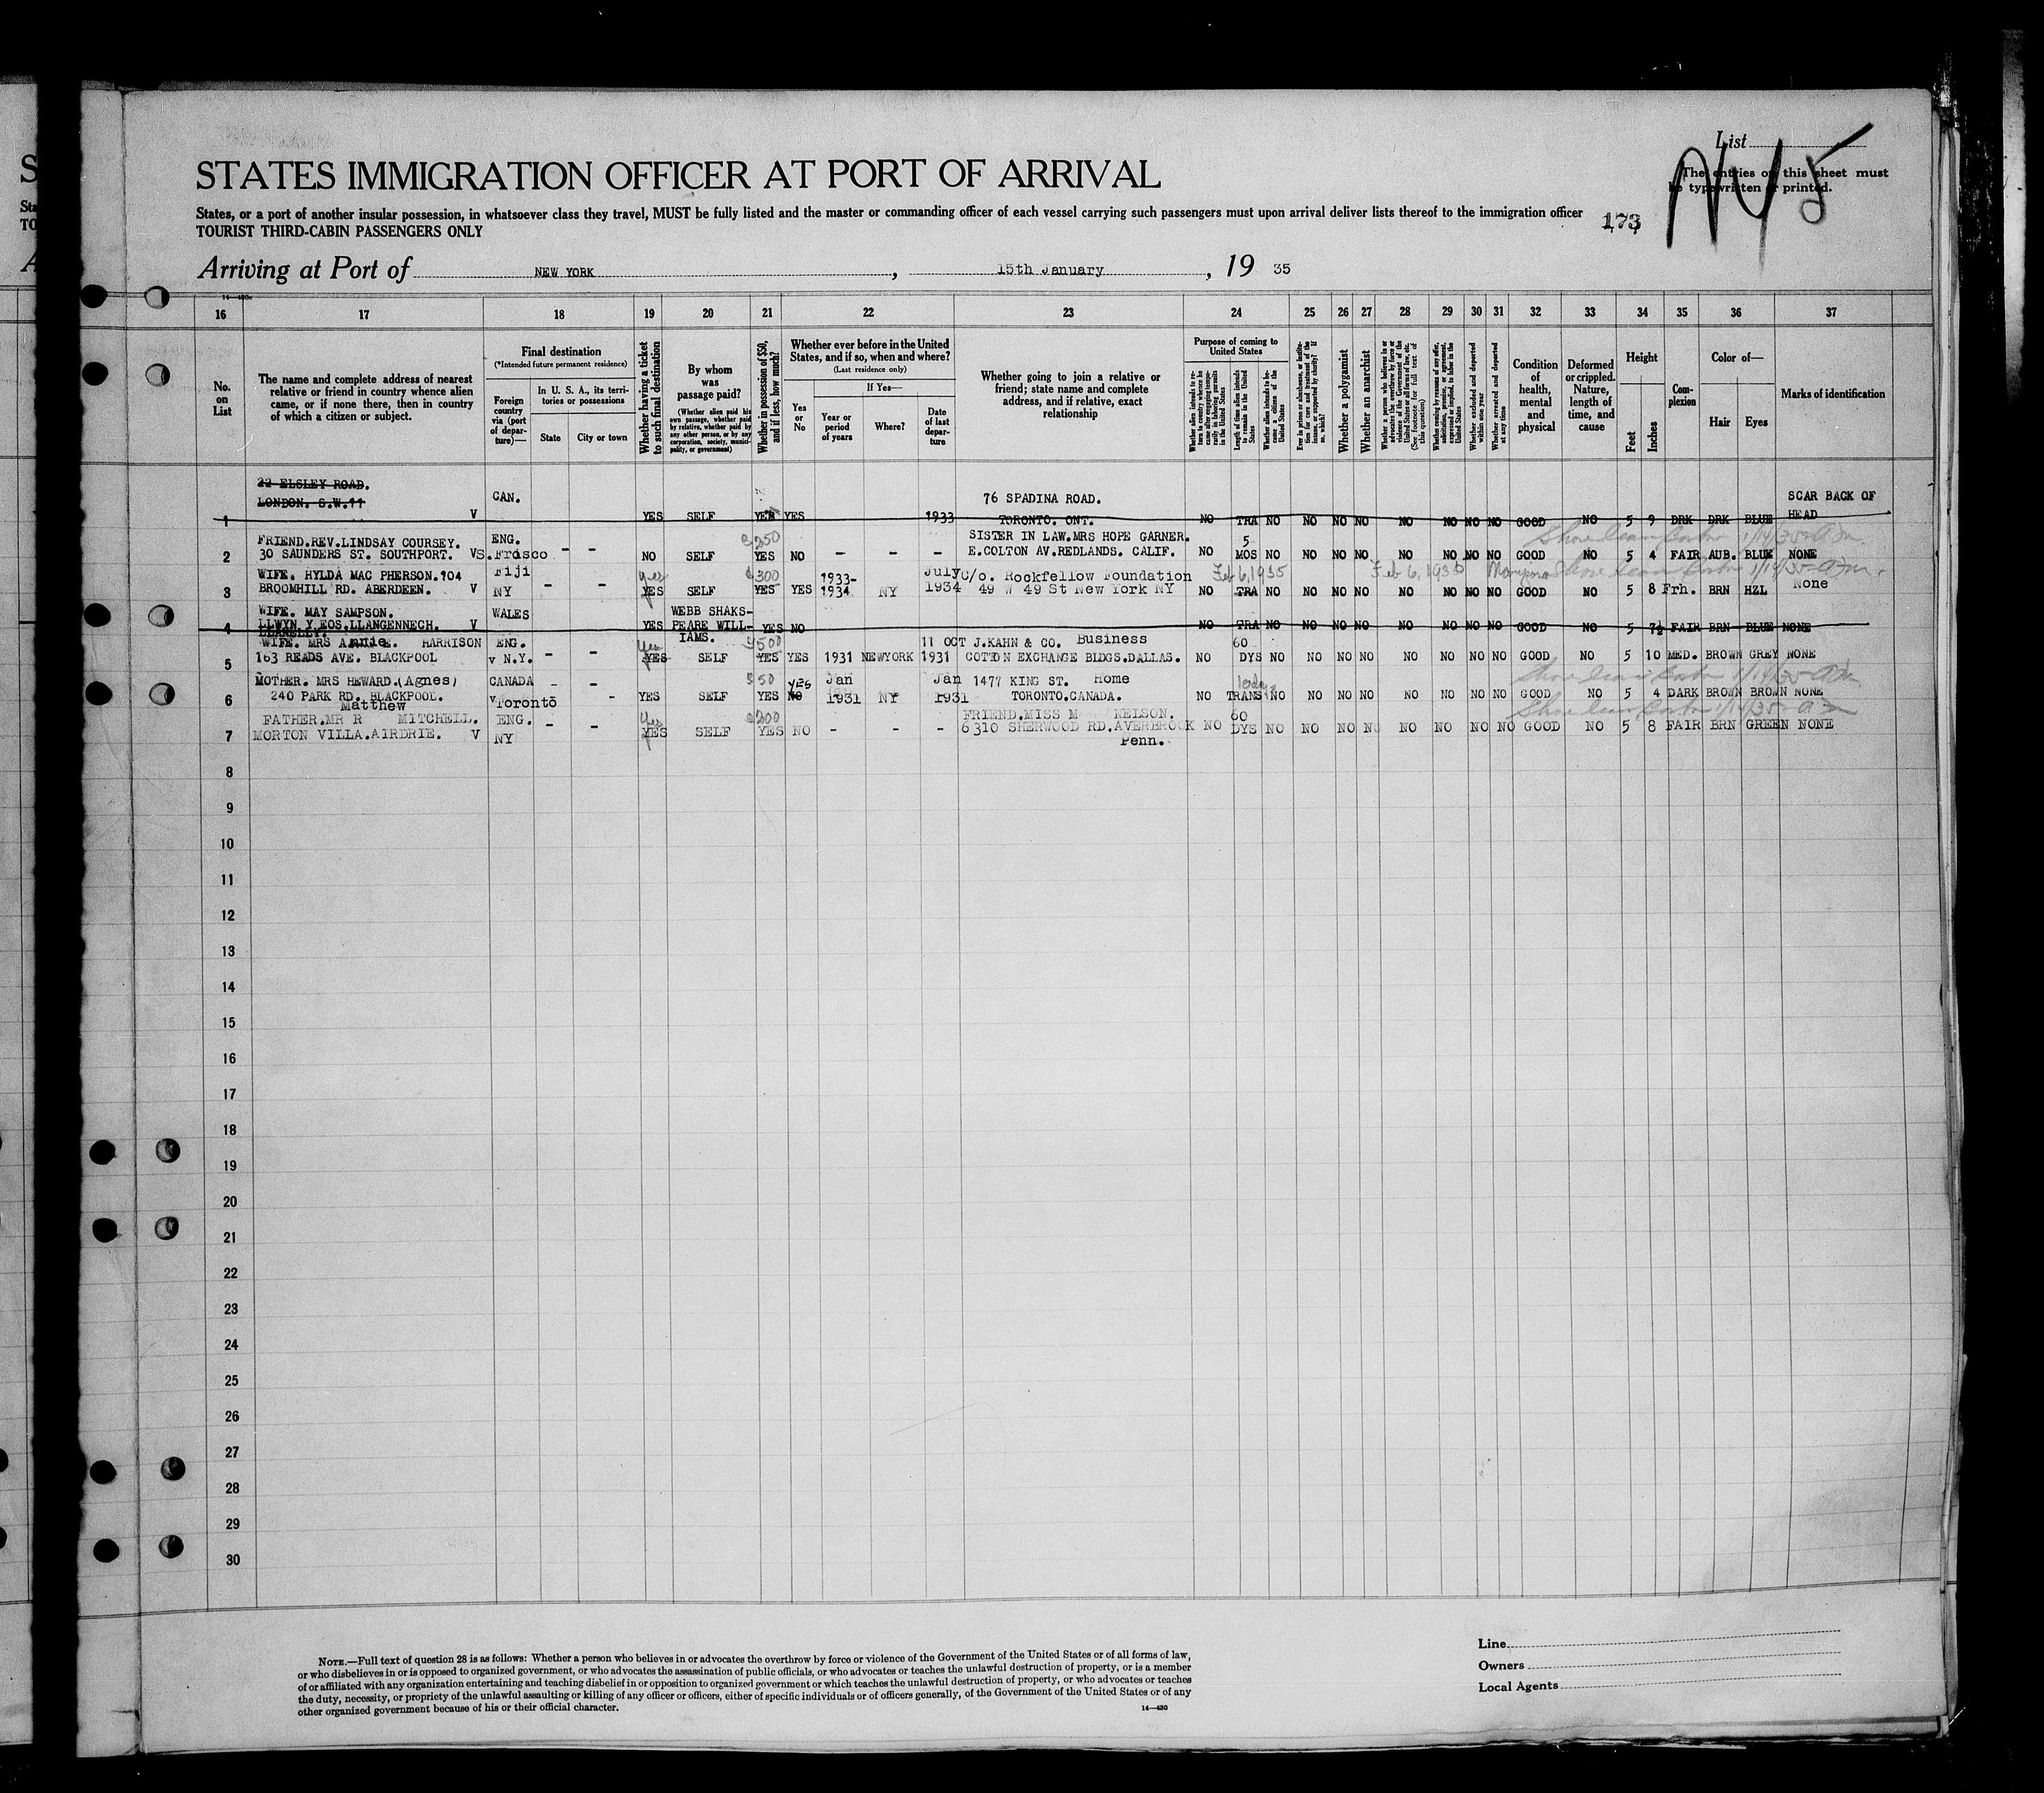 List
NY 5
The entries on this sheet must
be typewritten or printed.
STATES IMMIGRATION OFFICER AT PORT OF ARRIVAL
States, or a port of another insular possession, in whatsoever class they travel, MUST be fully listed and the master or commanding officer of each vessel carrying such passengers must upon arrival deliver lists thereof to the immigration officer
173
TOURIST THIRD-CABIN PASSENGERS ONLY
Arriving at Port of NEW YORK, 15th January, 19 35
16 17 18 19 20 21 22 23 24 25 26 27 28 29 30 31 32 33 34 35 36 37
No. on List
The name and complete address of nearest
relative or friend in country whence alien
came, or if none there, then in country
of which a citizen or subject.
Final destination
(*Intended future permanent residence)
Foreign country via (port of departure)—
In U. S. A., its territories or possessions
State City or town
Whether having a ticket to such final destination
By whom was passage paid?
(Whether alien paid his own passage, whether paid by relative, whether paid by any other person, or by any corporation, society, municipality, or government)
Whether in possession of $50, and if less, how much?
Whether ever before in the United States, and if so, when and where?
(Last residence only)
Yes or No
If Yes—
Year or period of years
Where?
Date of last departure
Whether going to join a relative or
friend; state name and complete
address, and if relative, exact
relationship
Purpose of coming to United States
Length of time alien intends to remain in the United States
Whether a polygamist
Whether an anarchist
Condition of health, mental and physical
Deformed or crippled. Nature, length of time, and cause
Height
Feet Inches
Complexion
Color of—
Hair Eyes
Marks of identification
22 ELSLEY ROAD.
LONDON. S.W.11 V CAN. 76 SPADINA ROAD. SCAR BACK OF
1 YES SELF YES YES 1933 TORONTO. ONT. NO TRA NO NO NO NO NO NO NO NO GOOD NO 5 9 DRK DRK BLUE HEAD
FRIEND.REV.LINDSAY COURSEY. ENG. $250 SISTER IN LAW.MRS HOPE GARNER. 5
2 30 SAUNDERS ST. SOUTHPORT. V S.Frasco - - NO SELF YES NO - - - E.COLTON AV.REDLANDS. CALIF. NO MOS NO NO NO NO NO NO NO NO GOOD NO 5 4 FAIR AUB. BLUE NONE
WIFE. HYLDA MAC PHERSON.104 Fiji yes $300 1933- July c/o. Rockfellow Foundation Feb 6, 1935 Feb 6, 1935
3 BROOMHILL RD. ABERDEEN. V NY - - YES SELF YES YES 1934 NY 1934 49 W 49 St New York NY NO TRA NO NO NO NO NO NO NO NO GOOD NO 5 8 Frh. BRN HZL None
WIFE. MAY SAMPSON. WALES WEBB SHAKS-
4 LLWYN Y EOS.LLANGENNECH. V YES PEARE WILL- YES NO NO TRA NO NO NO NO NO NO NO NO GOOD NO 5 7½ FAIR BRN BLUE NONE
LLANELLY. IAMS.
WIFE. MRS Annie E. HARRISON ENG. yes $500 11 OCT J.KAHN & CO. Business 60
5 163 READS AVE. BLACKPOOL v N.Y. - - YES SELF YES YES 1931 NEWYORK 1931 COTTON EXCHANGE BLDGS.DALLAS. NO DYS NO NO NO NO NO NO NO NO GOOD NO 5 10 MED. BROWN GREY NONE
MOTHER. MRS HEWARD.(Agnes) CANADA - - $50 YES Jan Jan 1477 KING ST. Home 10dys
6 240 PARK RD. BLACKPOOL. v Toronto - YES SELF YES No 1931 NY 1931 TORONTO.CANADA. NO TRANS NO NO NO NO NO NO NO NO GOOD NO 5 4 DARK BROWN BROWN NONE
Matthew
FATHER.MR R MITCHELL. ENG. yes $200 FRIEND.MISS M NELSON. 60
7 MORTON VILLA.AIRDRIE. V NY - - YES SELF YES NO - - - 6310 SHERWOOD RD.AVERBROOK NO DYS NO NO NO NO NO NO NO NO GOOD NO 5 8 FAIR BRN GREEN NONE
Penn.
8
9
10
11
12
13
14
15
16
17
18
19
20
21
22
23
24
25
26
27
28
29
30
NOTE.—Full text of question 28 is as follows: Whether a person who believes in or advocates the overthrow by force or violence of the Government of the United States or of all forms of law,
or who disbelieves in or is opposed to organized government, or who advocates the assassination of public officials, or who advocates or teaches the unlawful destruction of property, or is a member
of or affiliated with any organization entertaining and teaching disbelief in or opposition to organized government or which teaches the unlawful destruction of property, or who advocates or teaches
the duty, necessity, or propriety of the unlawful assaulting or killing of any officer or officers, either of specific individuals or of officers generally, of the Government of the United States or of any
other organized government because of his or their official character.
14—430
Line
Owners
Local Agents